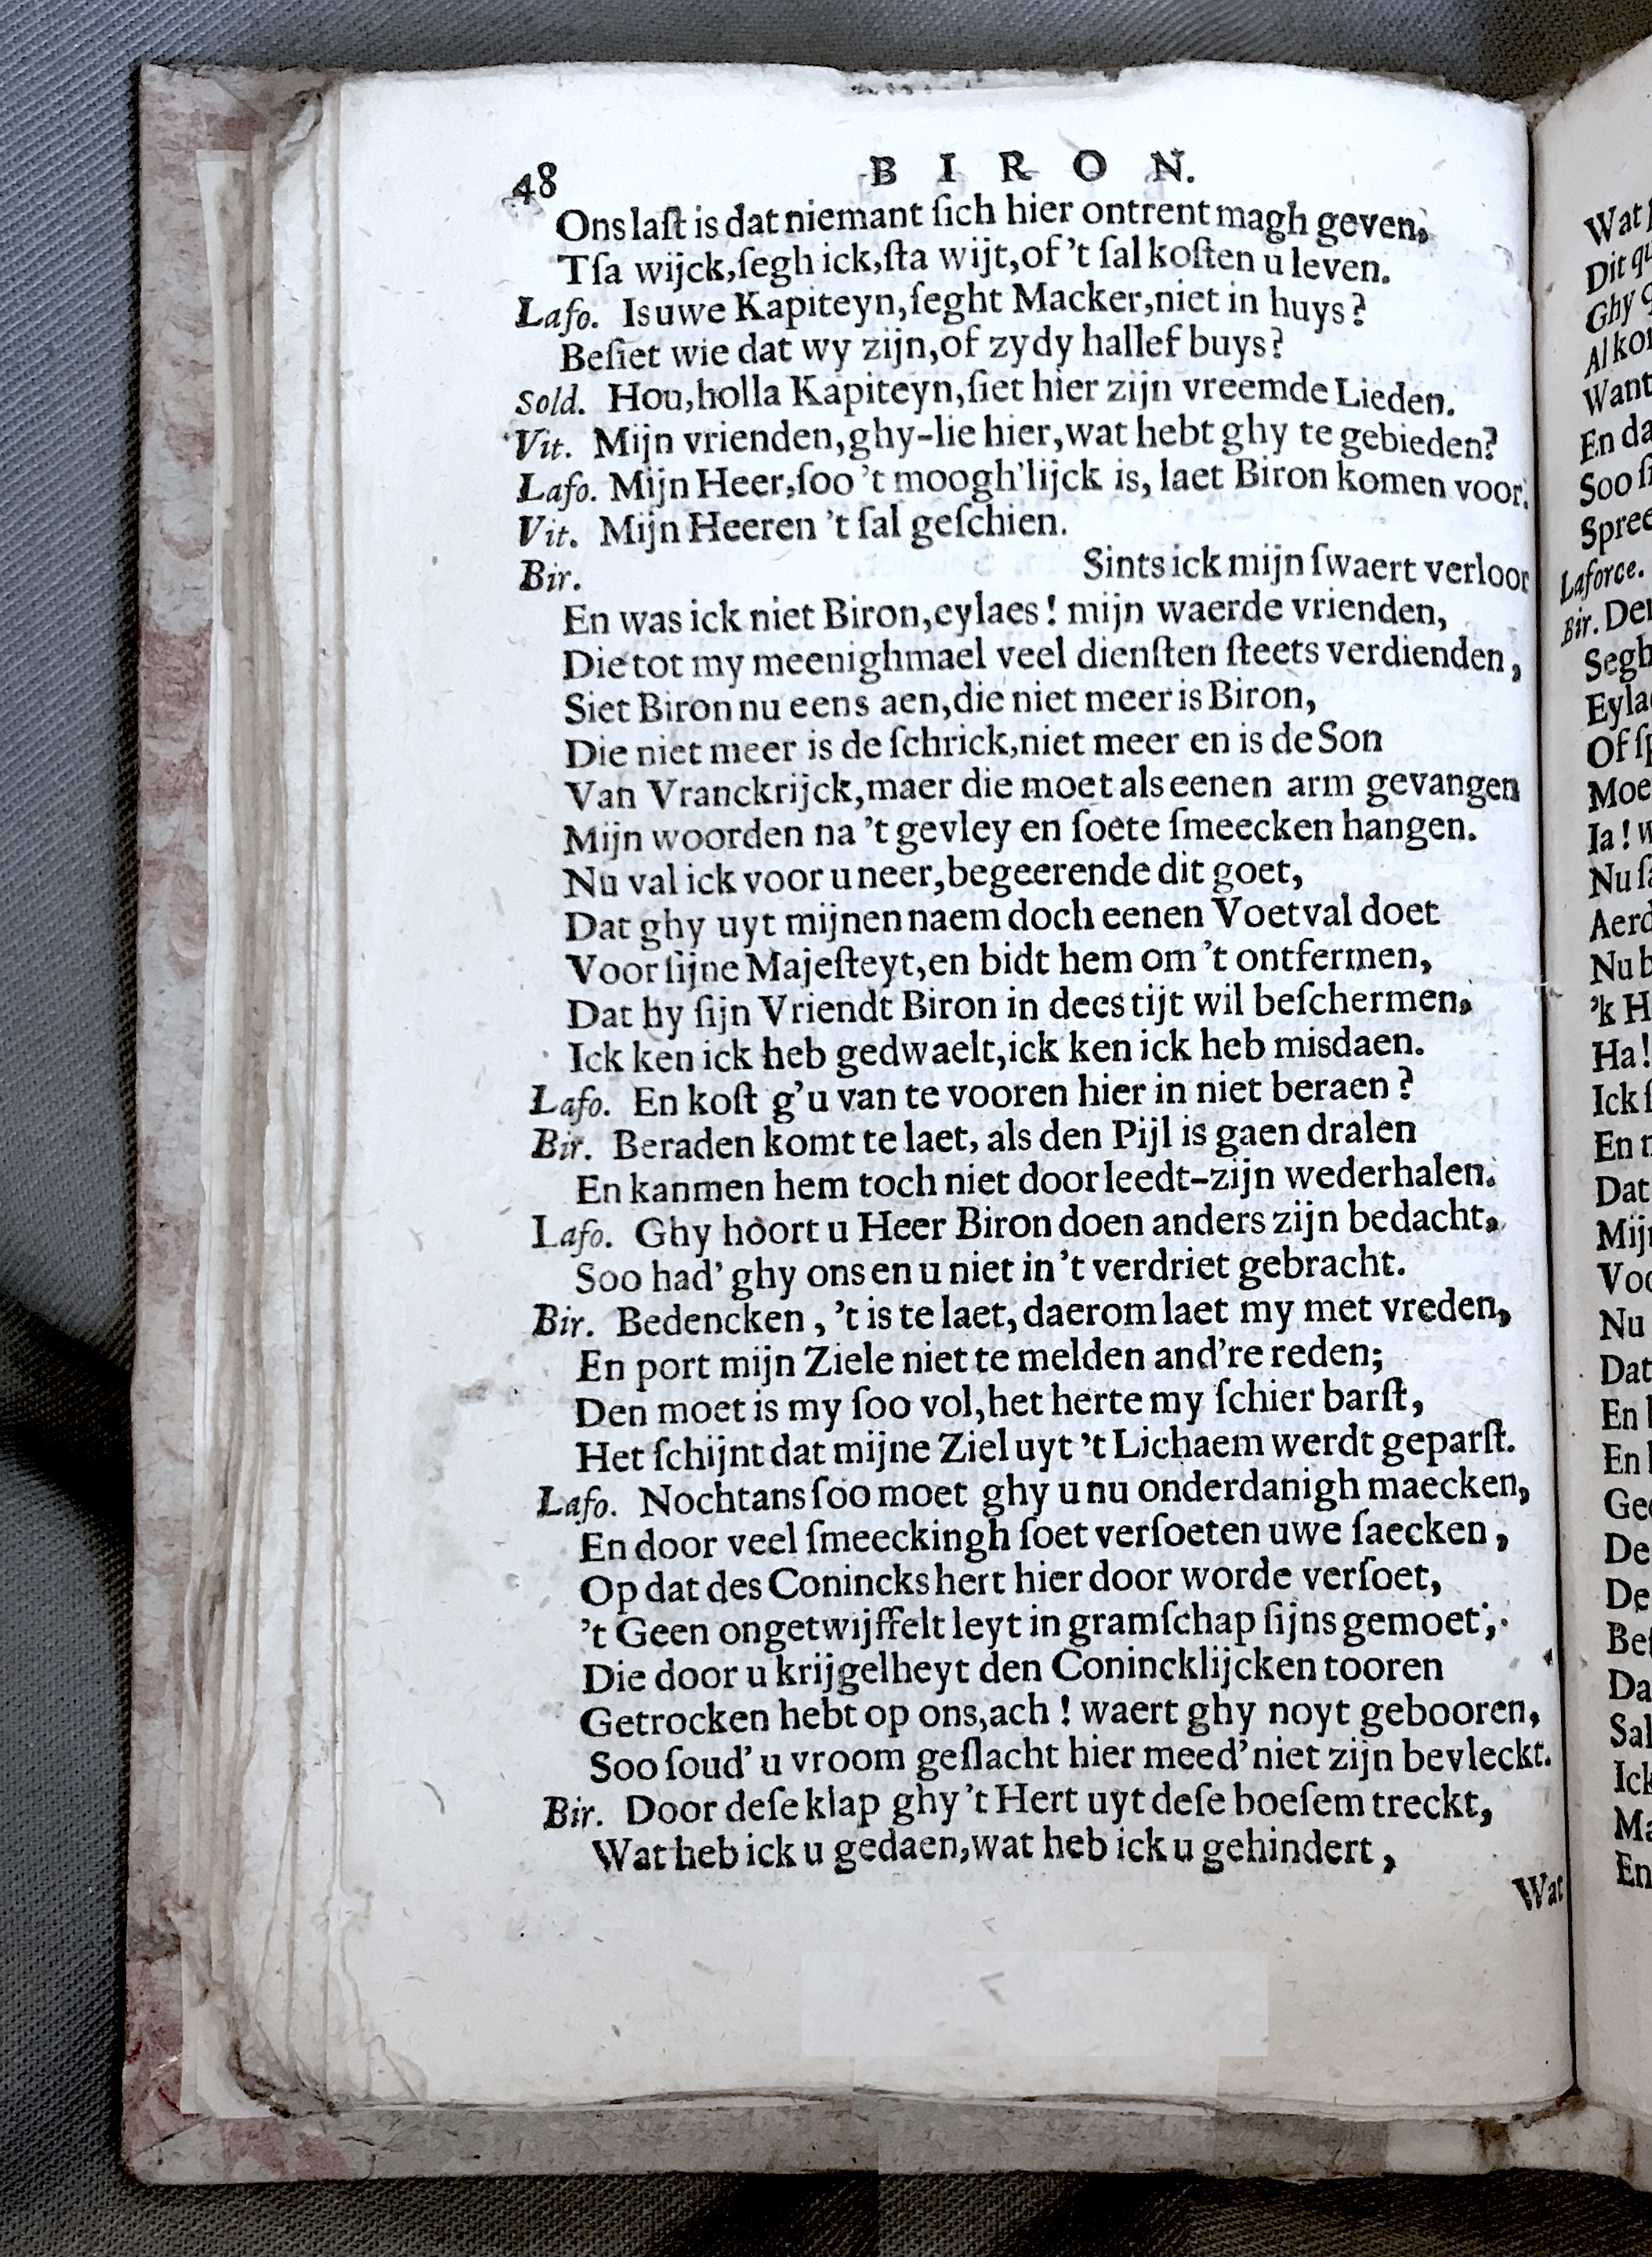 48 BIRON.
Ons laſt is dat niemant ſich hier ontrent magh geven,
Tſa wijck, ſegh ick, ſta wijt, of 't ſal koſten u leven.
Lafo. Is uwe Kapiteyn, ſeght Macker, niet in huys?
Beſiet wie dat wy zijn, of zydy hallef buys?
Sold. Hou, holla Kapiteyn, ſiet hier zijn vreemde Lieden.
Vit. Mijn vrienden, ghy-lie hier, wat hebt ghy te gebieden?
Lafo. Mijn Heer, ſoo 't moogh'lijck is, laet Biron komen voor.
Vit. Mijn Heeren 't ſal geſchien.
Bir. Sints ick mijn ſwaert verloor
En was ick niet Biron, eylaes! mijn waerde vrienden,
Die tot my meenighmael veel dienſten ſteets verdienden,
Siet Biron nu eens aen, die niet meer is Biron,
Die niet meer is de ſchrick, niet meer en is de Son
Van Vranckrijck, maer die moet als eenen arm gevangen
Mijn woorden na 't gevley en ſoete ſmeecken hangen.
Nu val ick voor u neer, begeerende dit goet,
Dat ghy uyt mijnen naem doch eenen Voetval doet
Voor ſijne Majeſteyt, en bidt hem om 't ontfermen,
Dat hy ſijn Vriendt Biron in dees tijt wil beſchermen,
Ick ken ick heb gedwaelt, ick ken ick heb misdaen.
Lafo. En koſt g'u van te vooren hier in niet beraen?
Bir. Beraden komt te laet, als den Pijl is gaen dralen
En kanmen hem toch niet door leedt-zijn wederhalen.
Lafo. Ghy hoort u Heer Biron doen anders zijn bedacht,
Soo had' ghy ons en u niet in 't verdriet gebracht.
Bir. Bedencken, 't is te laet, daerom laet my met vreden,
En port mijn Ziele niet te melden and're reden;
Den moet is my ſoo vol, het herte my ſchier barſt,
Het ſchijnt dat mijne Ziel uyt 't Lichaem werdt geparſt.
Lafo. Nochtans ſoo moet ghy u nu onderdanigh maecken,
En door veel ſmeeckingh ſoet verſoeten uwe ſaecken,
Op dat des Conincks hert hier door worde verſoet,
't Geen ongetwijffelt leyt in gramſchap ſijns gemoet,
Die door u krijgelheyt den Conincklijcken tooren
Getrocken hebt op ons, ach! waert ghy noyt gebooren,
Soo ſoud' u vroom geſlacht hier meed' niet zijn bevleckt.
Bir. Door deſe klap ghy 't Hert uyt deſe boeſem treckt,
Wat heb ick u gedaen, wat heb ick u gehindert,
Wat
Dit
Ghy
Al
Want
En
Soo
Laforce.
Bir.
Eyla
Of
Moe
Ia!
Nu
Aerd
Nu
'k
Ha!
Ick
En
Dat
Nu
Dat
En
En